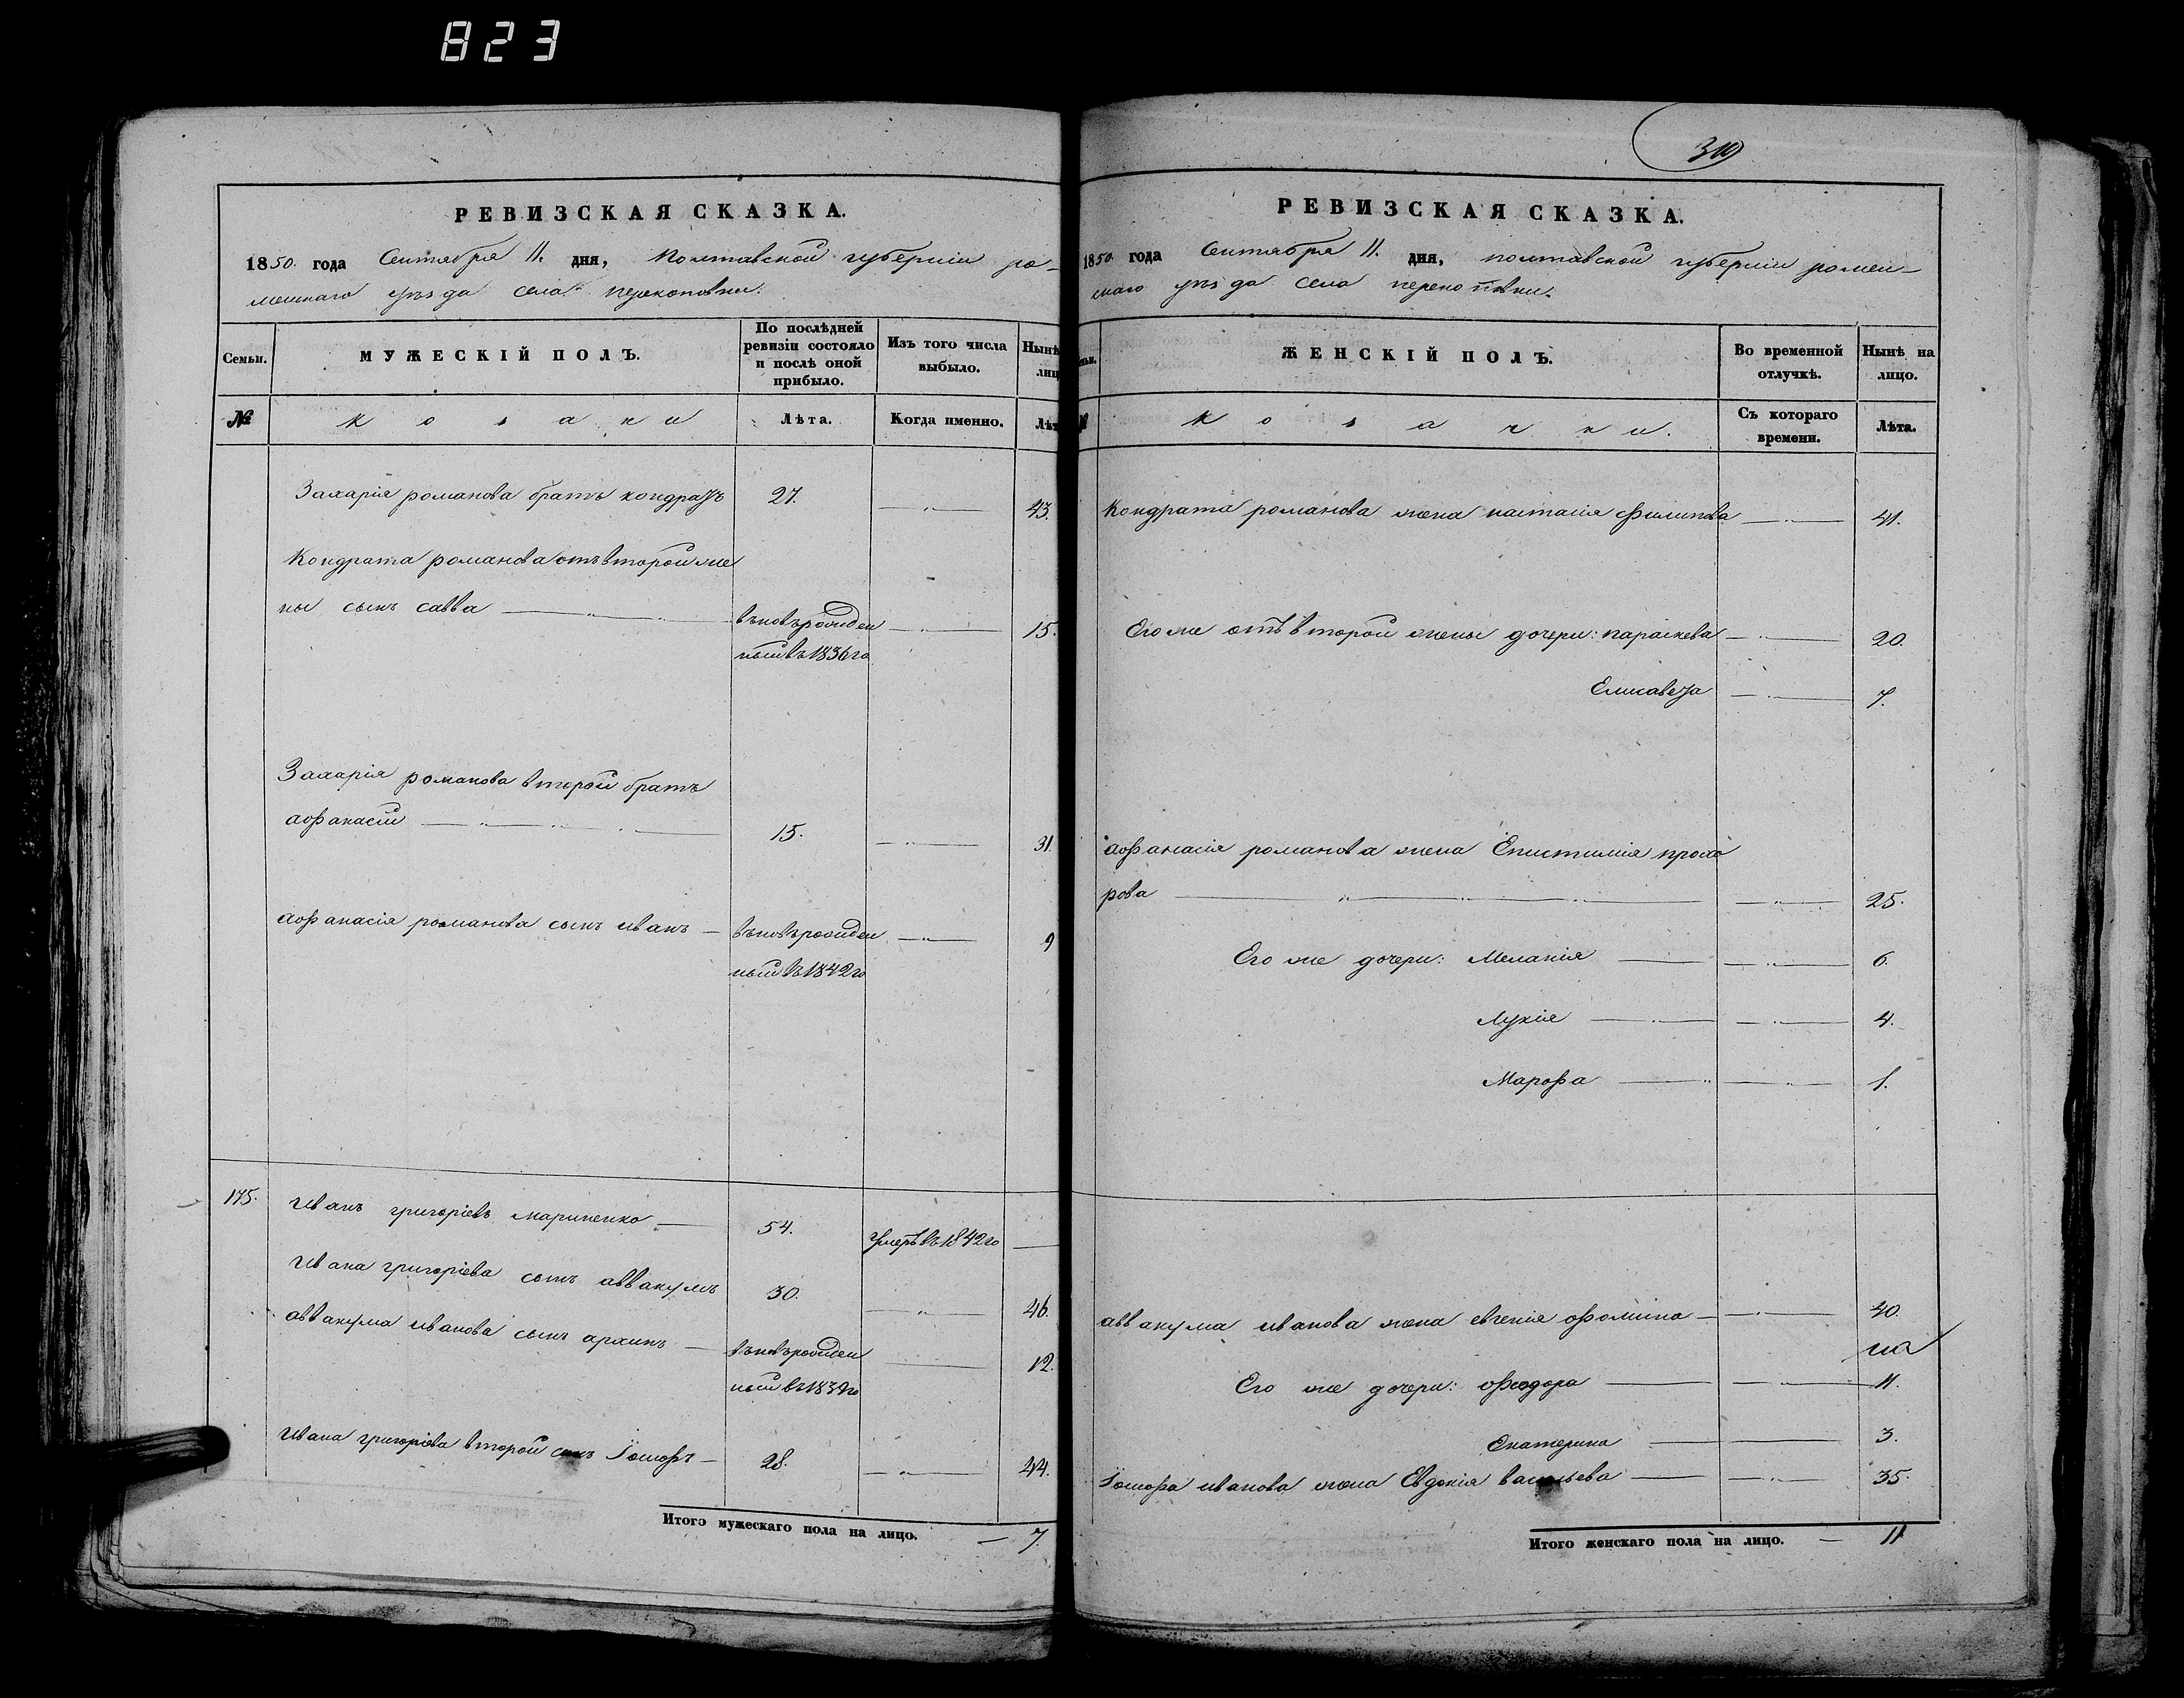 823
РЕВИЗСКАЯ СКАЗКА.
1850. года Сентября 11. дня, Полтавской губернии ро-
менскаго уѣзда села Перекоповки.
Семьи.
МУЖЕСКІЙ ПОЛЪ.
По послѣдней ревизіи состояло и послѣ оной прибыло.
Изъ того числа выбыло.
Нынѣ
лиц
№
Козаки
Лѣта.
Когда именно.
Лѣт
Захарія романова братъ кондратъ 27. 43.
Кондрата романова отъ второй же
ны сынъ савва вновьрожден 15.
ный въ 1836го
Захарія романова второй братъ
аофанасій 15. 31.
аофанасія романова сынъ иванъ вновьрожден 9
ный въ 1842го
175. Иванъ григоріевъ мариненко 54. Умеръ въ 1842го
Ивана григоріева сынъ аввакумъ 30. 46.
аввакума иванова сынъ архипъ вновьрожден 12.
ный въ 1839го
Ивана григоріева второй сынъ Іосифъ 28. 44.
Итого мужескаго пола на лицо. 7.
319
РЕВИЗСКАЯ СКАЗКА.
1850. года Сентября 11. дня, полтавской губернии ромен-
скаго уѣзда села перекоповки.
ЖЕНСКІЙ ПОЛЪ.
Во временной отлучкѣ.
Нынѣ на лицо.
Козачки.
Съ котораго времени.
Лѣта.
Кондрата романова жена настасія Филипова 41.
Его же отъ второй жены дочери: параскева 20.
Елисавета 7.
аофанасія романова жена Епистимія прохо
рова 25.
Его же дочери: Меланія 6.
Лукія 4.
Марофа 1.
аввакума иванова жена евгенія офомина 40.
Его же дочери: офеодора 11.
Екатерина 3.
Іосифа иванова жена Евдокія васильева 35.
Итого женскаго пола на лицо. 11